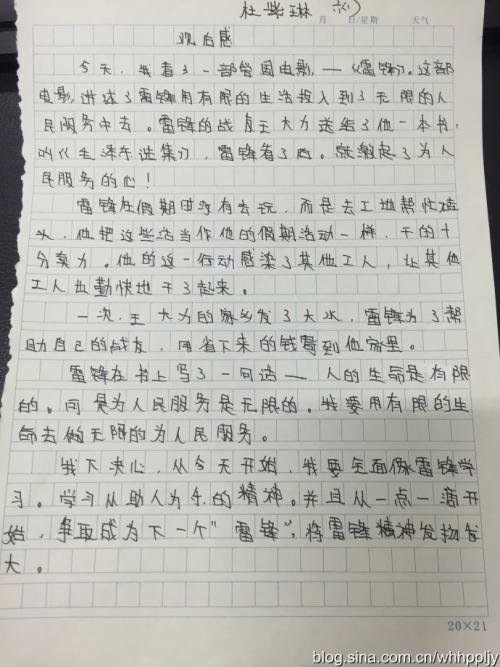 杜紫琳 六(1)
月 日/星期 天气
观后感
今天,我看了一部爱国电影,—《雷锋》。这部
电影,讲述了雷锋用有限的生活投入到了无限的人
民服务中去。雷锋的战友王大力送给了他一本书,
叫《毛泽东选集》,雷锋看了后。就激起了为人
民服务的心!
雷锋在假期时没有去玩,而是去工地帮忙
头,他把这些活当作他的假期活动一样,干的十
分卖力。他的这一行动感染了其他工人,让其他
工人也勤快地干了起来。
一次,王大力的家乡发了大水,雷锋为了帮
助自己的战友,用省下来的钱寄到他家里。
雷锋在书上写了一句话— 人的生命是有限
的。可是为人民服务是无限的。我要用有限的生
命去做无限的为人民服务。
我下决心,从今天开始,我要全面像雷锋学
习。学习从助人为乐的精神。并且从一点一滴开
始,争取成为下一个"雷锋",将雷锋精神发扬发
大。
20×21
blog.sina.com.cn/whhppljy